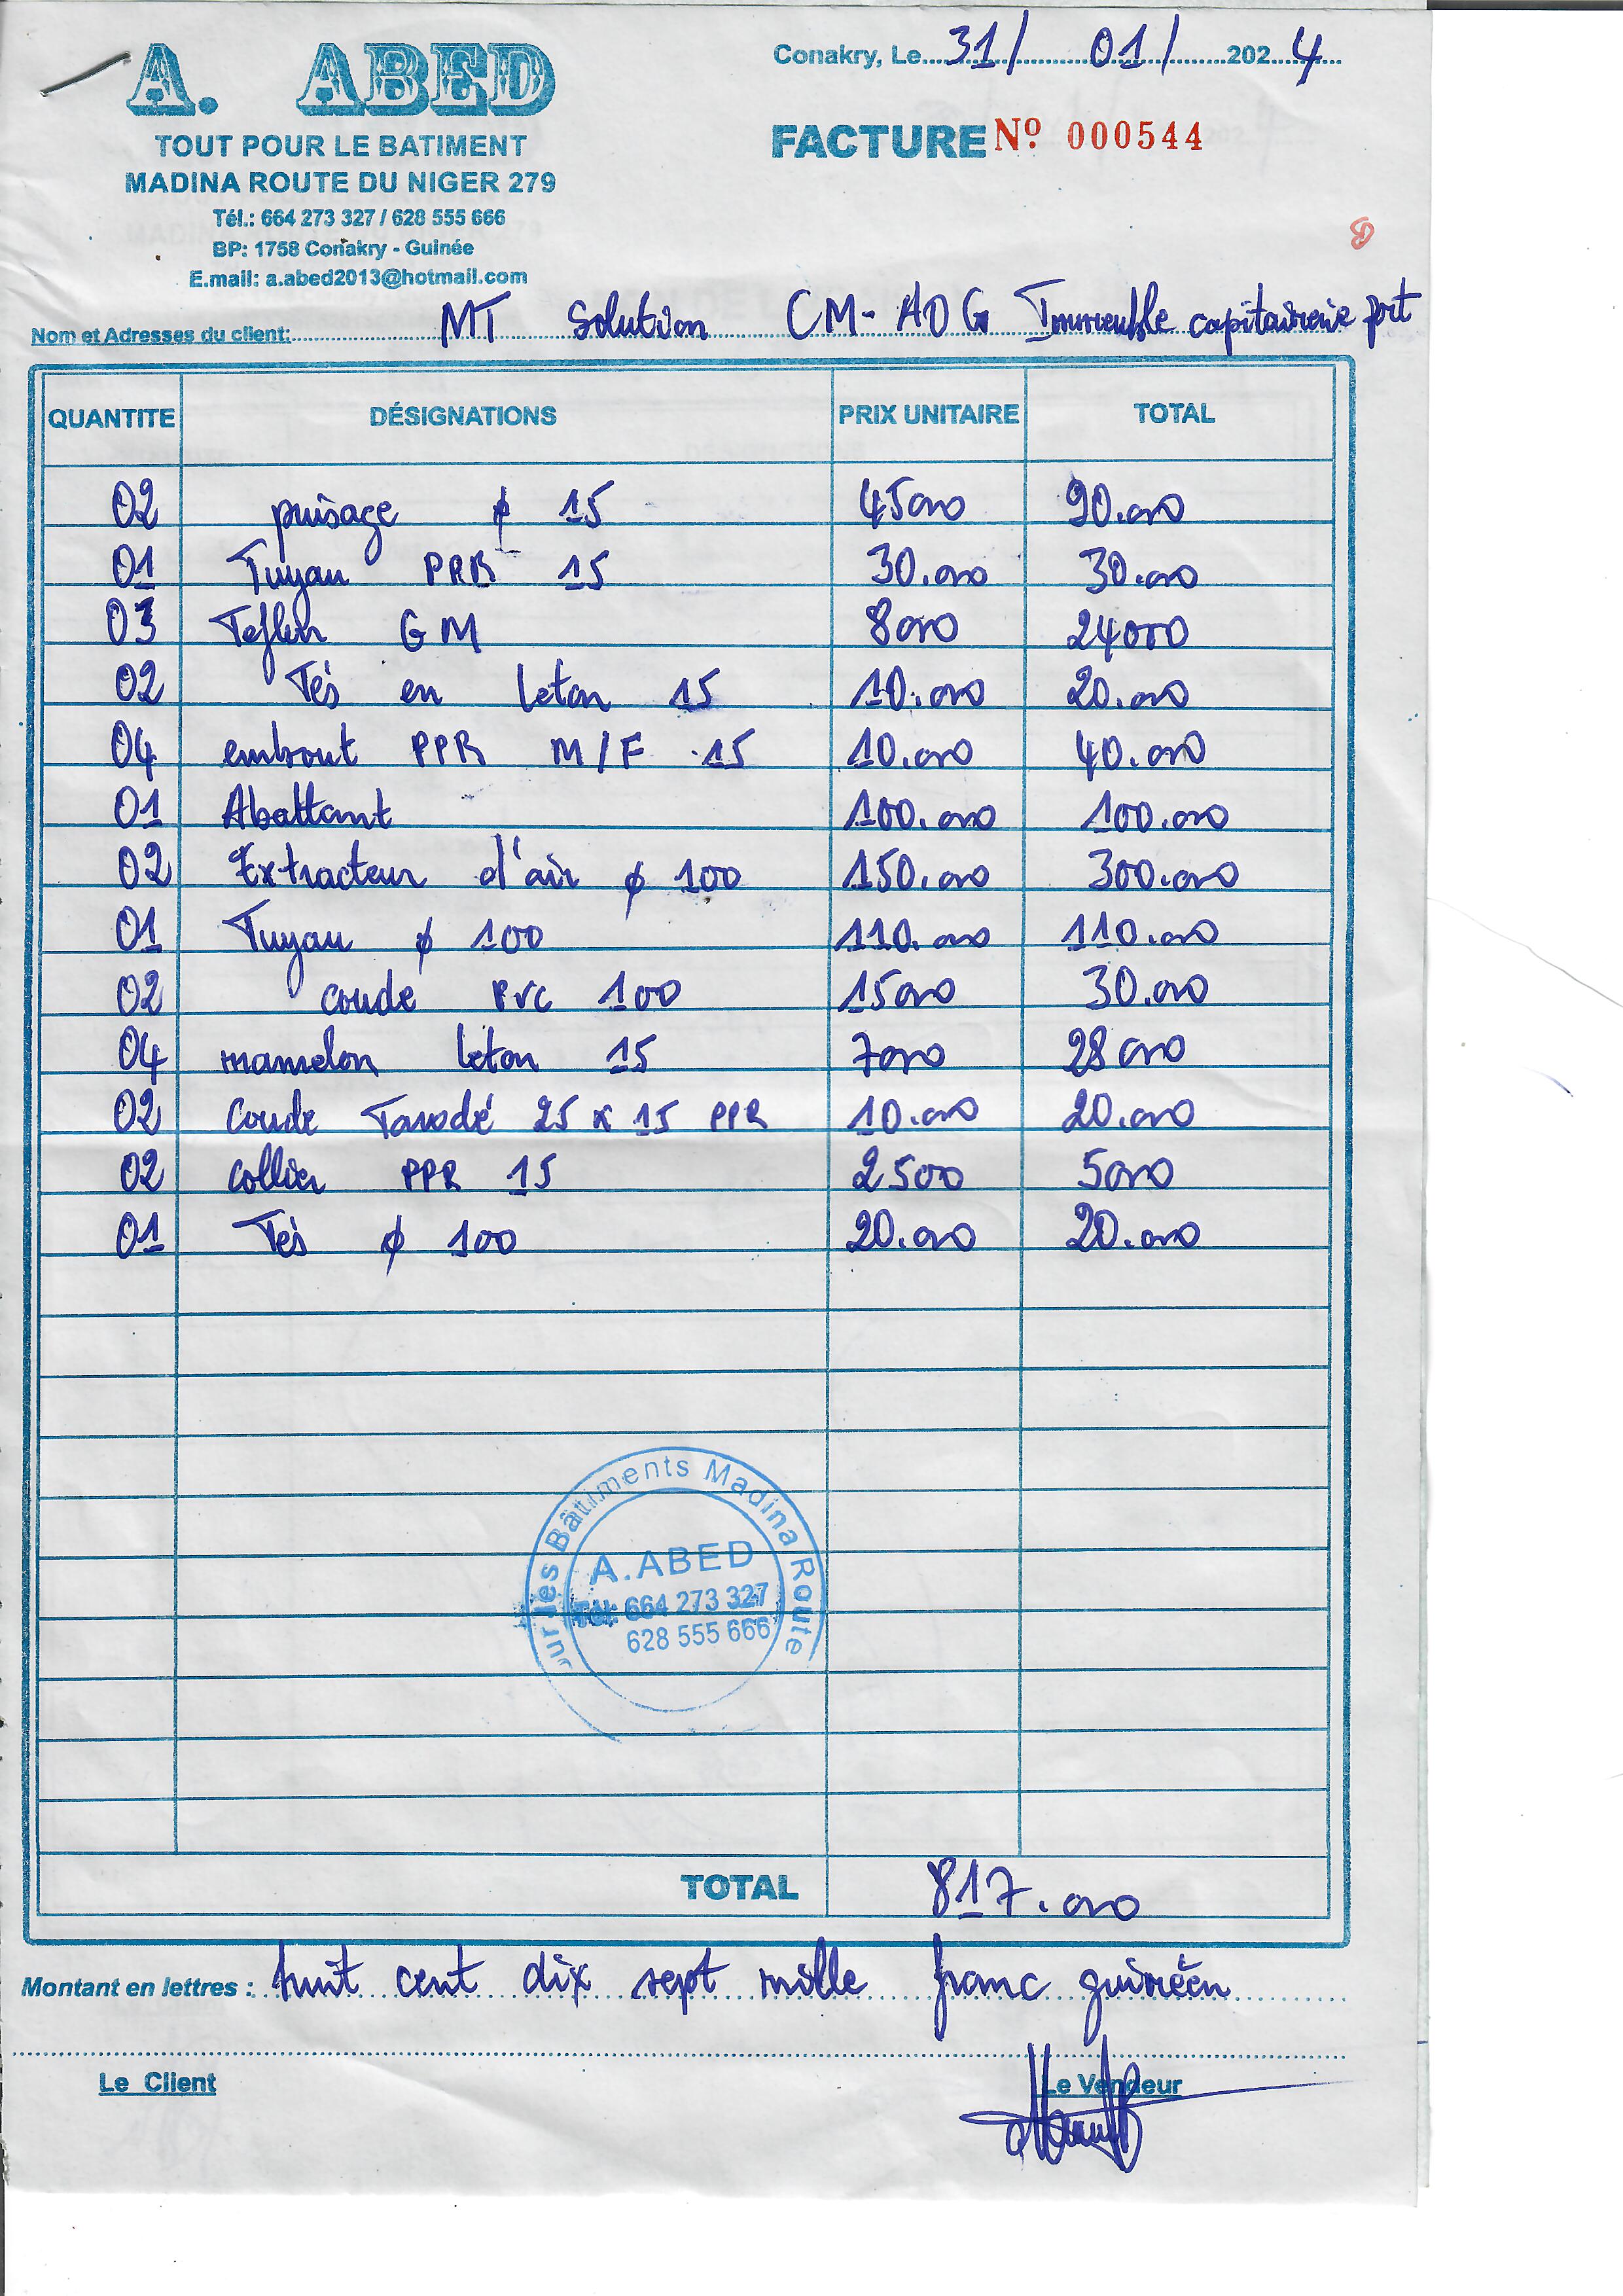 Conakry, Le 31/ 01/ 2024
A. ABED
TOUT POUR LE BATIMENT
MADINA ROUTE DU NIGER 279
Tél.: 664 273 327 / 628 555 666
BP: 1758 Conakry - Guinée
E.mail: a.abed2013@hotmail.com
FACTURE Nº 000544
8
Nom et Adresses du client: MT Solution CM-AOG Immeuble capitainerie port
QUANTITE DÉSIGNATIONS PRIX UNITAIRE TOTAL
02 puisage ϕ 15 45000 90.000
01 Tuyau PPR 15 30.000 30.000
03 Teflon GM 8000 24000
02 Tés en leton 15 10.000 20.000
04 embout PPR M/F 15 10.000 40.000
01 Abattant 100.000 100.000
02 Extracteur d'air ϕ 100 150.000 300.000
01 Tuyau ϕ 100 110.000 110.000
02 coude PVC 100 15000 30.000
04 mamelon leton 15 7000 28000
02 Coude Taraudé 25 x 15 PPR 10.000 20.000
02 Collier PPR 15 2500 5000
01 Tés ϕ 100 20.000 20.000
ur les Bâtiments Madina Route
A.ABED
Tél: 664 273 327
628 555 666
TOTAL 817.000
Montant en lettres : huit cent dix sept mille franc guinéen
Le Client Le Vendeur